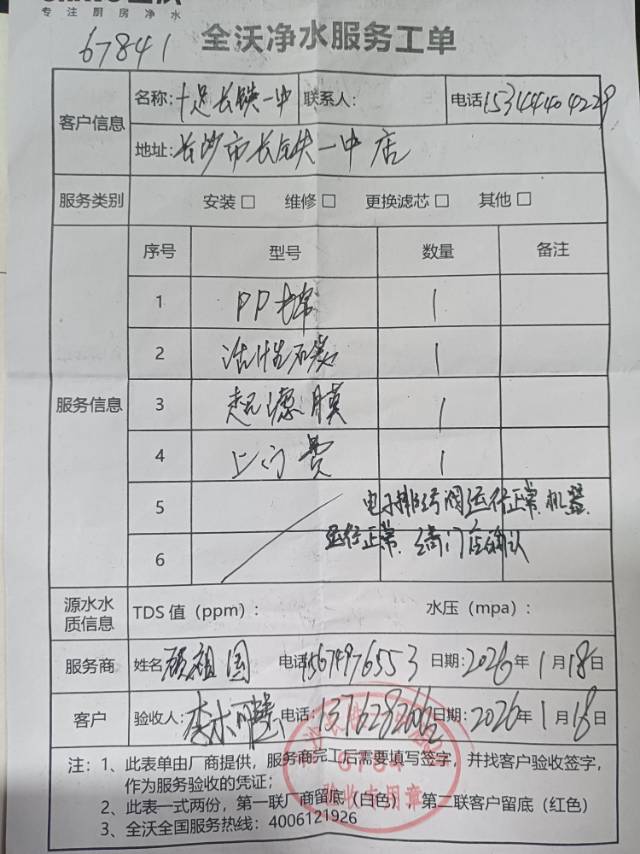 专注厨房净水
67841
全沃净水服务工单
客户信息
名称: 十足长铁一中 联系人: 电话 15344404229
地址: 长沙市长铁一中店
服务类别 安装 □ 维修 □ 更换滤芯 □ 其他 □
服务信息
序号 型号 数量 备注
1 PP棉 1
2 活性炭 1
3 超滤膜 1
4 上门费 1
5 电子排污阀运行正常.机器
6 运行正常.请门店确认
源水水质信息 TDS 值（ppm）: 水压（mpa）:
服务商 姓名 祖国 电话 15674976553 日期: 2026年1月18日
客户 验收人: 李 电话: 日期: 2026年1月18日
注: 1、此表单由厂商提供，服务商完工后需要填写签字，并找客户验收签字，
作为服务验收的凭证；
2、此表一式两份，第一联厂商留底（白色） 第二联客户留底（红色）
3、全沃全国服务热线: 4006121926
验收专用章